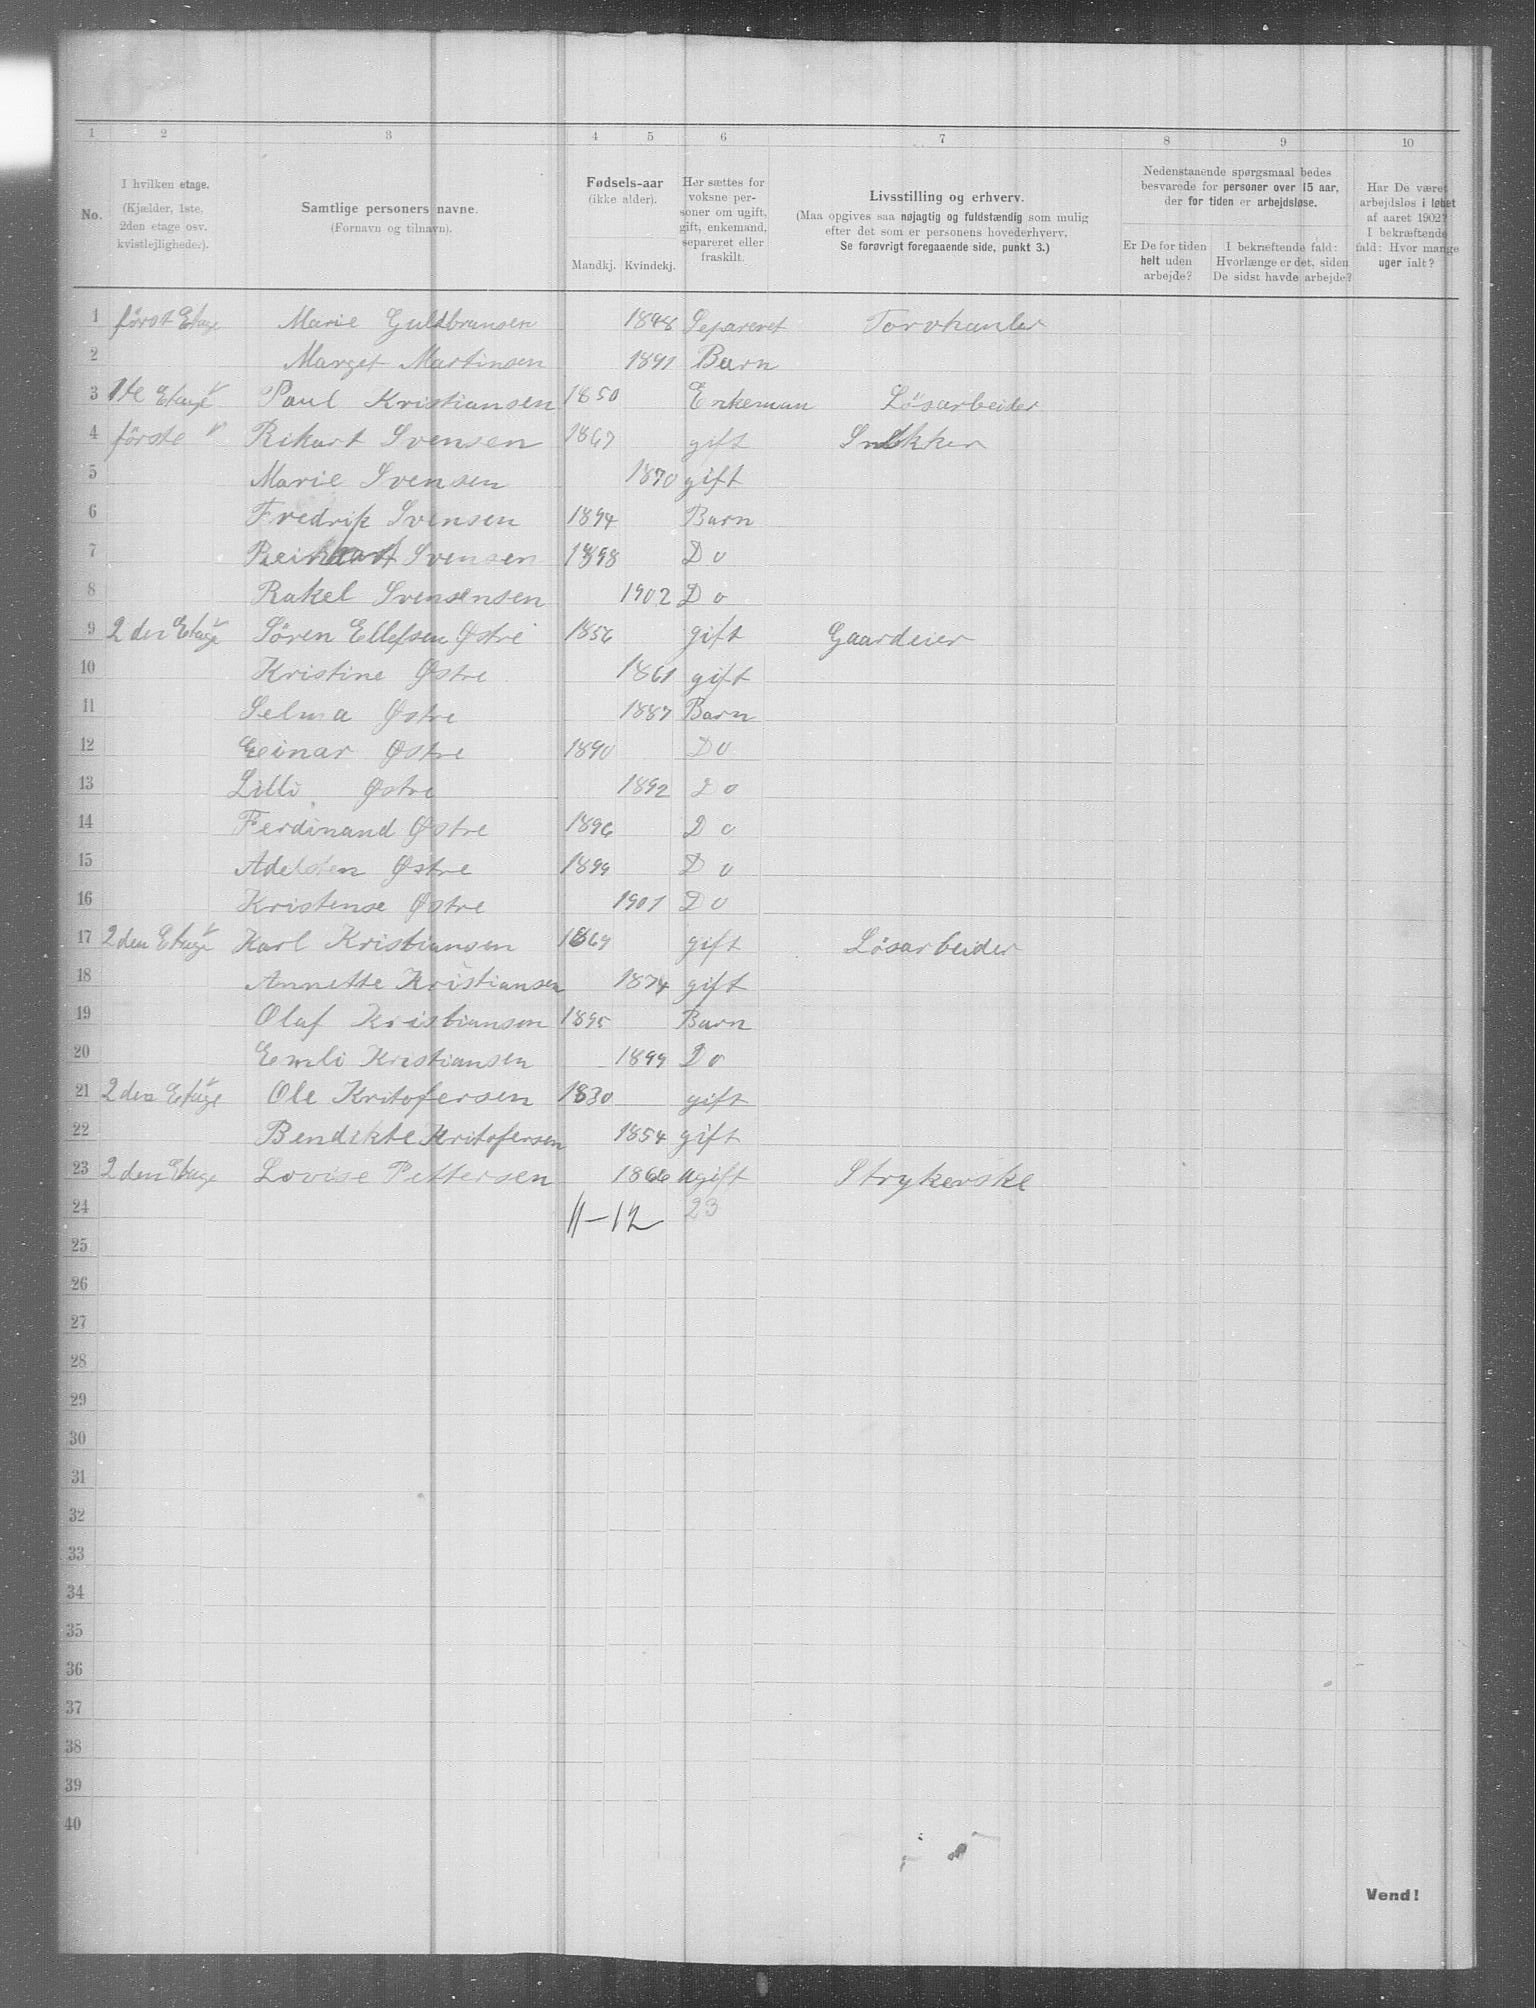 1 2 3 4 5 6 7 8 9 10
No.
I hvilken etage.
(Kjælder, 1ste,
2den etage osv.
kvistlejligheder).
Samtlige personers navne.
(Fornavn og tilnavn).
Fødsels-aar
(ikke alder).
Mandkj. Kvindekj.
Her sættes for
voksne per-
soner om ugift,
gift, enkemand,
separeret eller
fraskilt.
Livsstilling og erhverv.
(Maa opgives saa nøjagtig og fuldstændig som mulig
efter det som er personens hovederhverv.
Se forøvrigt foregaaende side, punkt 3.)
Nedenstaaende spørgsmaal bedes
besvarede for personer over 15 aar,
der for tiden er arbejdsløse.
Er De for tiden
helt uden
arbejde?
I bekræftende fald:
Hvorlænge er det, siden
De sidst havde arbejde?
Har De været
arbejdsløs i løbet
af aaret 1902?
I bekræftende
fald: Hvor mange
uger ialt?
1 først Etage Marie Guldbransen 1848 Separeret Torvhanler
2 Marget Martinsen 1891 Barn
3 1te Etage Paul Kristiansen 1850 Enkeman Løsarbeider
4 første " Rikart Svensen 1867 gift Snekker
5 Marie Svensen 1870 gift
6 Fredrik Svensen 1894 Barn
7 Reinhart Svensen 1898 Do
8 Rakel Svensensen 1902 Do
9 2 den Etage Søren Ellefsen Østre 1856 gift Gaardeier
10 Kristine Østre 1861 gift
11 Selma Østre 1887 Barn
12 Eeinar Østre 1890 Do
13 Lilli Østre 1892 Do
14 Ferdinand Østre 1896 Do
15 Adelsten Østre 1899 Do
16 Kristense Østre 1901 Do
17 2 den Etage Karl Kristiansen 1869 gift Løsarbeider
18 Annette Kristiansen 1874 gift
19 Olaf Kristiansen 1895 Barn
20 Eemli Kristiansen 1899 Do
21 2 den Etage Ole Kritofersen 1830 gift
22 Bendikte Kritofersen 1854 gift
23 2 den Etage Lovise Pettersen 1866 ugift Strykerske
24 11-12 23
25
26
27
28
29
30
31
32
33
34
35
36
37
38
39
40
Vend!